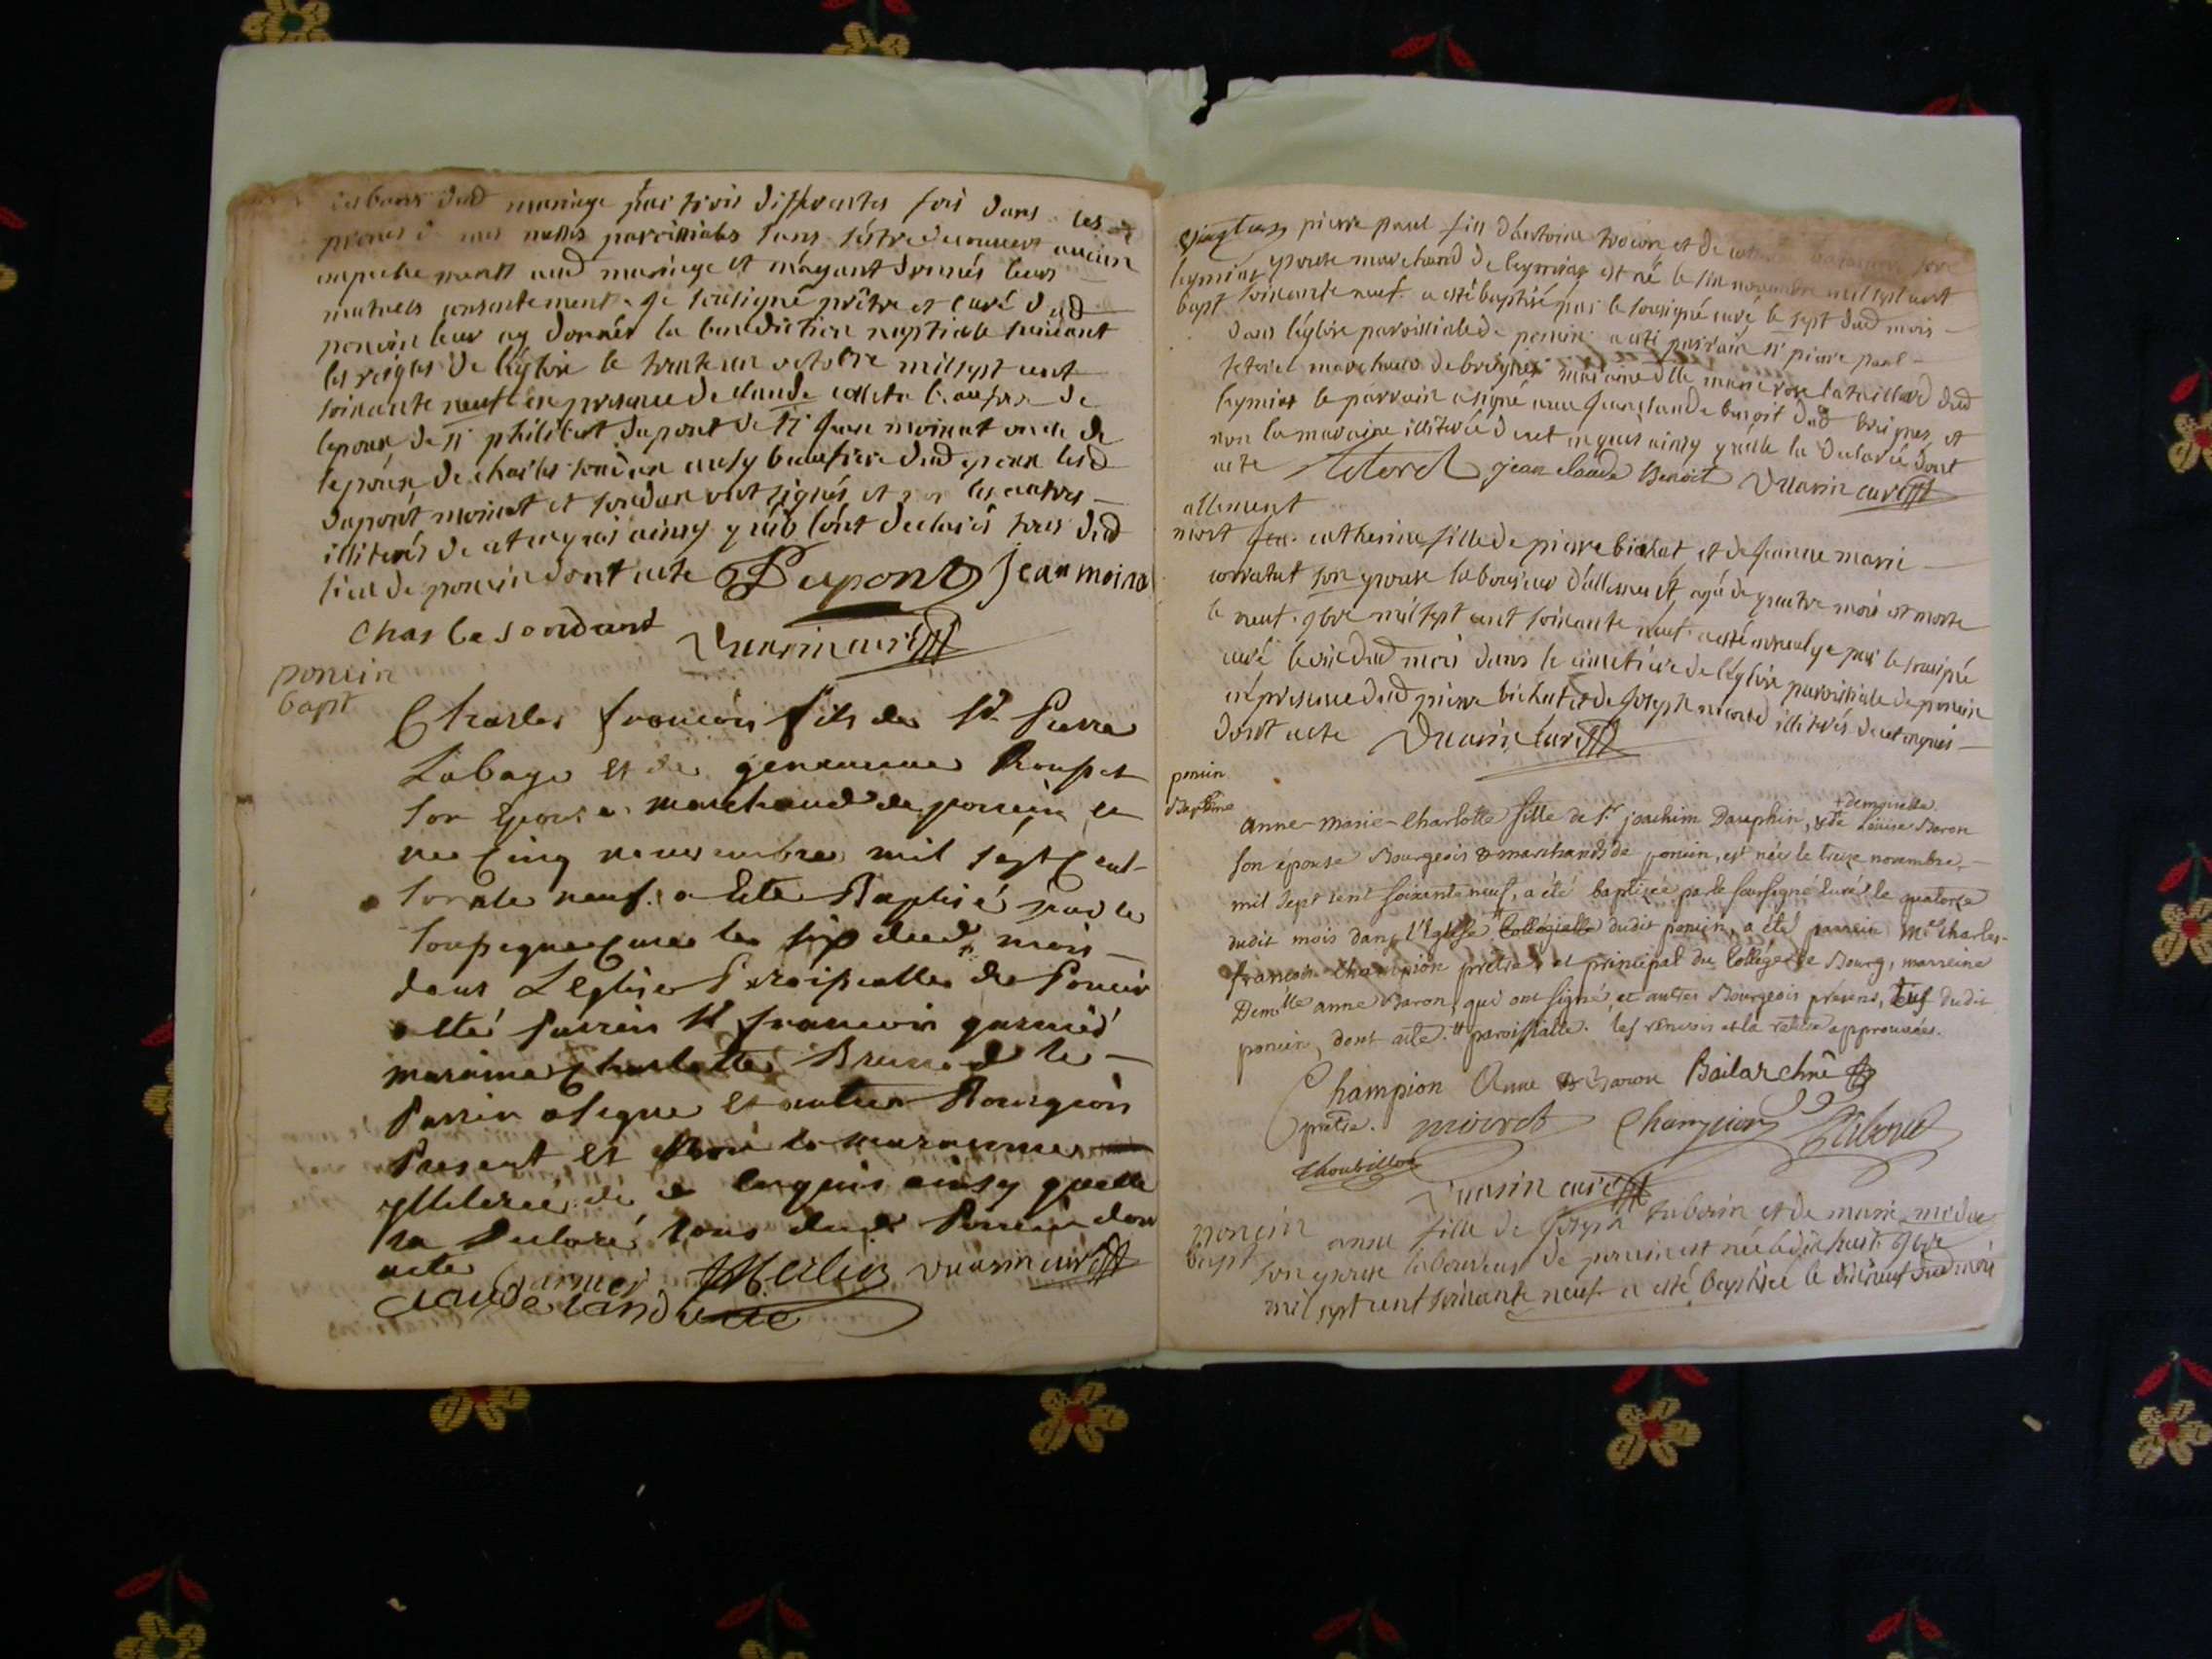 bans dud mariage par trois differentes fois dans les
prones de nos messes paroissiales sans s'être decouvert aucun
empechement aud mariage et m'ayant donnés leurs
mutuels consentement je soussigné prêtre et curé dud
poncin leur ay donnés la benediction nuptiale suivant
les reigles de l'église le trente un octobre mil sept cent
soixante neuf en presence de claude beaufrere de
lepoux, de sr philibert dupont de sr jean moinat oncle de
lepoux de charles sondan aussy beaufrere dud epoux lesd
dupont moinat et sondan ont signés et non les autres
illiterés de ce enquis ainsy quils l'ont declarés tous dud
lieu de poncin dont acte Dupont jean moina
Charle sondant Vuarin curé
poncin
bapt
Charles francois fils de sr. Pierre
Labaye et de genevieve Rouset
son Epouse marchand de poncin est
nee Cinq novembre mil sept Cent
soixante neuf. a Eté Baptisé par le
soussigné Curé le six dud mois
dans L'Eglise Paroissialle de Poncin
a Eté Parrein sr francois garnier
maraine Charlotte Brunod le
Parrein a signe et autres Bourgeois
Present et non la maraine
yllileree de ce enquis ainsy quelle
la Declaré tous dudt Poncin dont
acte garnier Vuarin curé
claude
leymiat
bapt
pierre paul fils d'antoine et de
epouse marchand de leymiat est né le six novembre mil sept cent
soixante neuf a esté baptisé par le sousigné curé le sept dud mois
dans l'église paroissiale de poncin a été parrain sr pierre paul
tetorel marchand de maraine dlle marie rose tataillard dud
leymiat le parrain a signé avec jean claude benoit dud et
non la maraine illiterée de ce enquis ainsy quelle la declaré dont
acte tetorel jean claude Benoit Vuarin curé
allement
mort catherine fille de pierre bichat et de jeanne marie
son epouse laboureur d'allement agé de quatre mois est morte
le neuf 9bre mil sept cent soixante neuf a esté par le sousigné
curé le dix dud mois dans le cimetiere de l'église paroissiale de poncin
en presence dud pierre bichat et de joseph illiterés de ce enquis
dont acte Vuarin curé
poncin
Baptême
+ demoiselle
Anne-Marie-Charlotte fille de Sr. joachim Dauphin, & de + Louise Baron
son épouse Bourgeois & marchands de poncin, est née le treize novembre
mil sept cent soixante neuf, a été baptizée par le soussigné Curé le quatorze
dudit mois dans l'Eglise Collégialle dudit poncin, a été parrein Mre Charles-
françois Champion prêtre, et principal du Collége de Bourg, marreine
Demlle anne Baron, qui ont signé et autres Bourgeois présens, tous dudit
poncin, dont acte. # paroissialle. les renvois et la rature approuvées.
Champion Anne Baron Bailarchne
prêtre. moirod Champion
Choubillon
Vuarin curé
poncin
bapt
anne fille de joseph tuborin et de marie
son epouse laboureur de poncin est née le dix huit 9bre
mil sept cent soixante neuf a esté baptisée le dix neuf dud mois